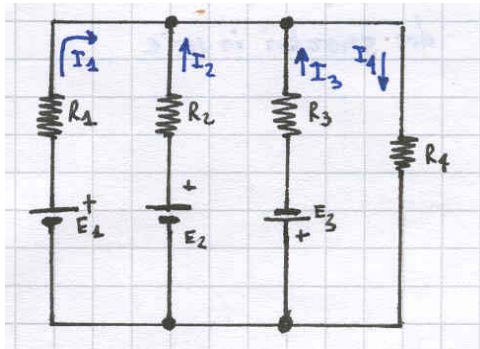 I1 I2 I3 I4
R1 R2 R3 R4
+ E1
+ E2
E3 +